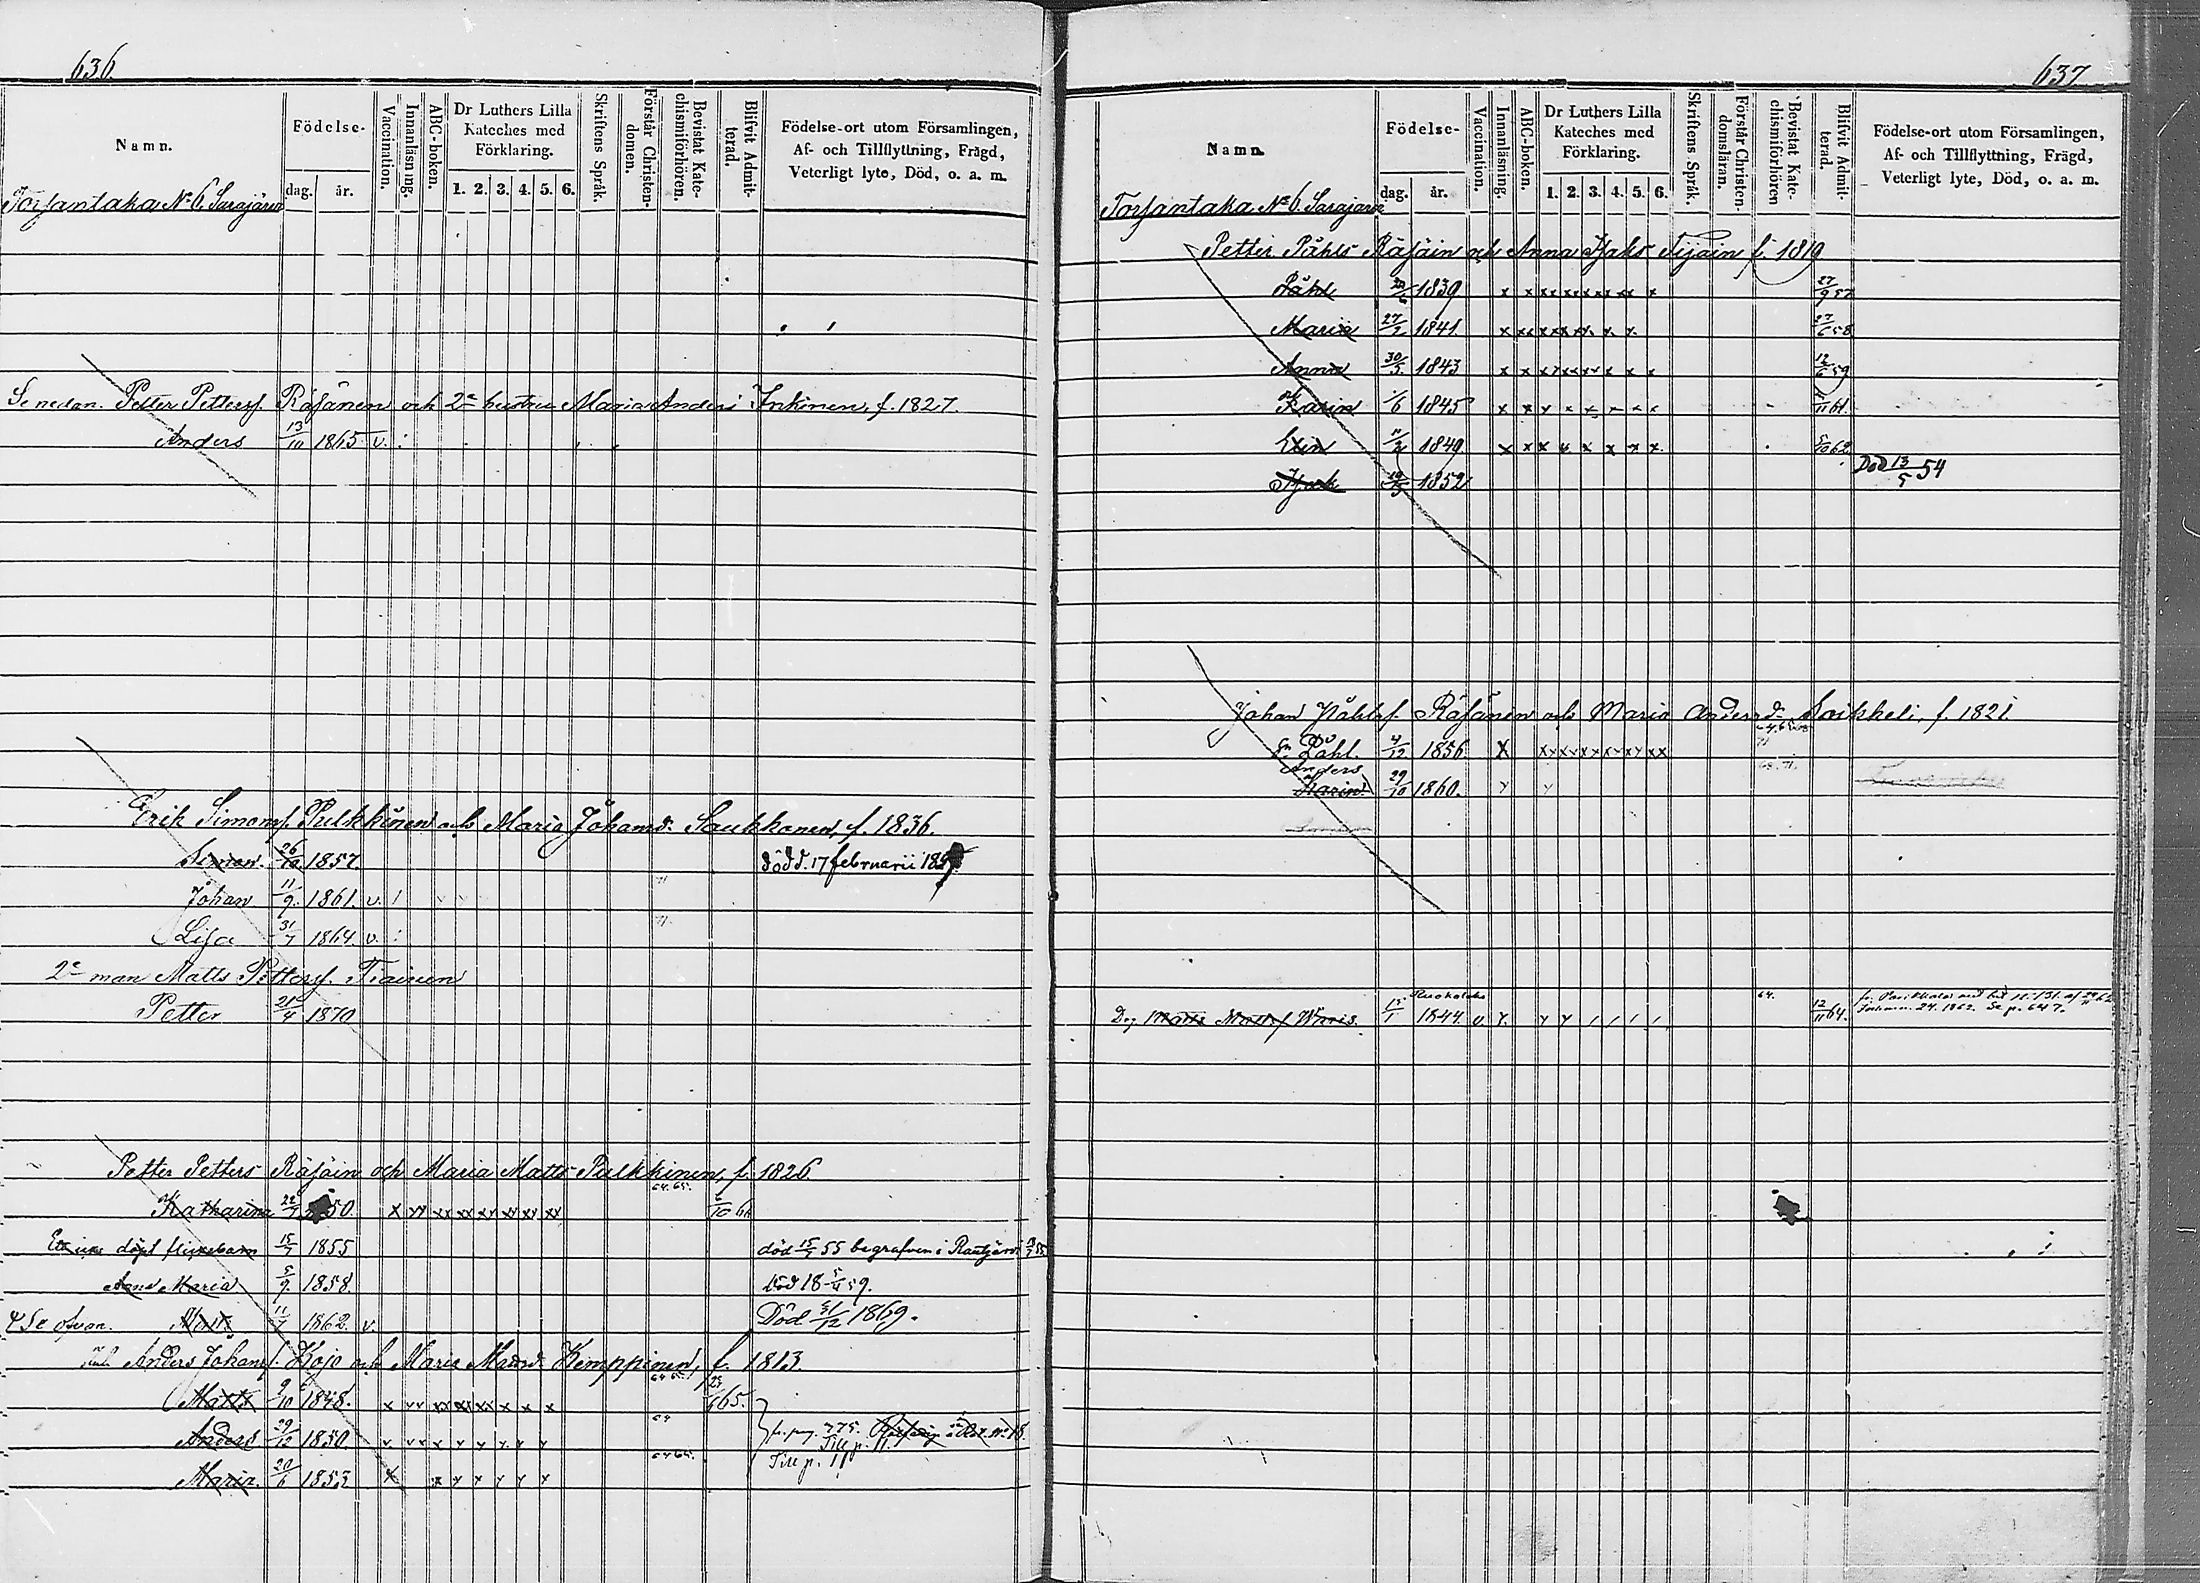 636.
Namn.
Födelse-
dag. år.
Vaccination.
Innanläsning.
ABC-boken.
Dr Luthers Lilla
Kateches med
Förklaring.
1. 2. 3. 4. 5. 6.
Skriftens Språk.
Förstår Christen-
domen.
Bevistat Kate-
chismiförhören.
Blifvit Admit-
terad.
Födelse-ort utom Församlingen,
Af- och Tillflyttning, Frägd,
Veterligt lyte, Död, o. a. m.
Torsantaka No 6. Sarajärvi
Se nedan. Petter Petterss. Räsänen och 2a hustru Maria Anders Inkinen, f. 1827.
Anders 13/10 1865 v.
Erik Simonss. Pulkkinen och Maria Johansd. Saukkonen, f. 1836.
Simon. 26/10 1857. död d. 17 februarii
Johan 11/9. 1861. v.
Lisa 31/7 1864. v.
2e man Matts Petterss. Tiainen
Petter 21/4 1870
Petter Petters Räsäin och Maria Matts Pulkkinen, f. 1826.
64. 65.
Katharina 22/7 50. x
Ett icke döpt flickebarn 15/7 1855 död 15/7 55 begrafven i Rautjärvi
Anna Maria 5/9. 1858. död 18 5/4 59.
Se ofvan. Matts 11/7 1862. v. Död 31/12 1869.
Anders Johanss. Kojo och Maria Madsd. Kemppinen, f. 1813.
Matts 9/10 1848. x 65.
Anders 29/12 1850. fr. pag. 275.
Till p. 11.
Maria. 20/6 1853 x Till p. 11
637
Namn.
Födelse-
dag. år.
Vaccination.
Innanläsning.
ABC-boken.
Dr Luthers Lilla
Kateches med
Förklaring.
1. 2. 3. 4. 5. 6.
Skriftens Språk.
Förstår Christen-
domsläran.
Bevistat Kate-
chismiförhören
Blifvit Admit-
terad.
Födelse-ort utom Församlingen,
Af- och Tillflyttning, Frägd,
Veterligt lyte, Död, o. a. m.
Torsantaka No 6. Sarajärvi
Petter Påhls Räsäin och Anna Isaks Tijäin f. 1819
Påhl 1839 27/9 57
Maria 27/2 1841. 27/6 58
Anna 30/3. 1843 12/6 59
Karin 1/6 1845 11 61.
Elin 11/2 1849 5/10 62
Isak 1852 Död 13/5 54
Johan Påhlss. Räsänen och Maria Andersd. Soikkeli, f. 1821.
Påhl. 4/12 1856. X
Anders
Karin 29/10 1860.
Ruokolaks 64.
Dr. Matts Mattss. Wäris. 15/1 1844. v. 12/11 64.
fr. Parikkala
Se p. 647.